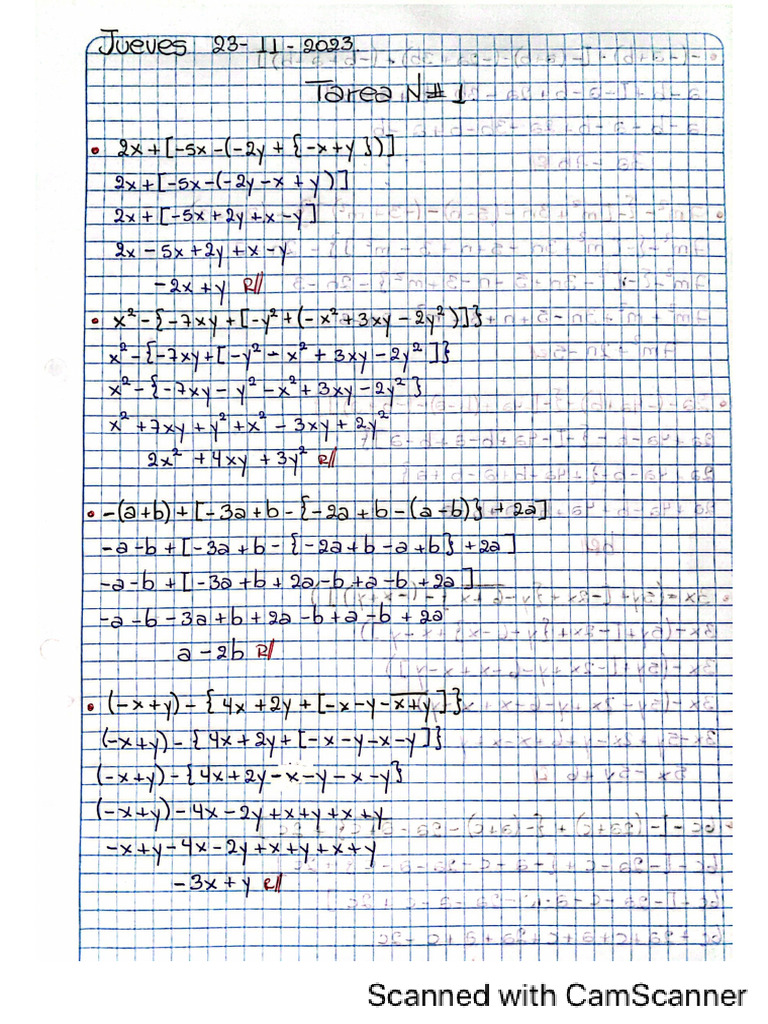 Jueves 23-11-2023.
Tarea N# 1
• 2x+[-5x-(-2y+{-x+y})]
2x+[-5x-(-2y-x+y)]
2x+[-5x+2y+x-y]
2x-5x+2y+x-y
-2x+y R//
• x²-{-7xy+[-y²+(-x²+3xy-2y²)]}
x²-{-7xy+[-y²-x²+3xy-2y²]}
x²-{-7xy-y²-x²+3xy-2y²}
x²+7xy+y²+x²-3xy+2y²
2x²+4xy+3y² R//
• -(a+b)+[-3a+b-{-2a+b-(a-b)}+2a]
-a-b+[-3a+b-{-2a+b-a+b}+2a]
-a-b+[-3a+b+2a-b+a-b+2a]
-a-b-3a+b+2a-b+a-b+2a
a-2b R//
• (-x+y)-{4x+2y+[-x-y-x̅+̅y̅]}
(-x+y)-{4x+2y+[-x-y-x-y]}
(-x+y)-{4x+2y-x-y-x-y}
(-x+y)-4x-2y+x+y+x+y
-x+y-4x-2y+x+y+x+y
-3x+y R//
Scanned with CamScanner